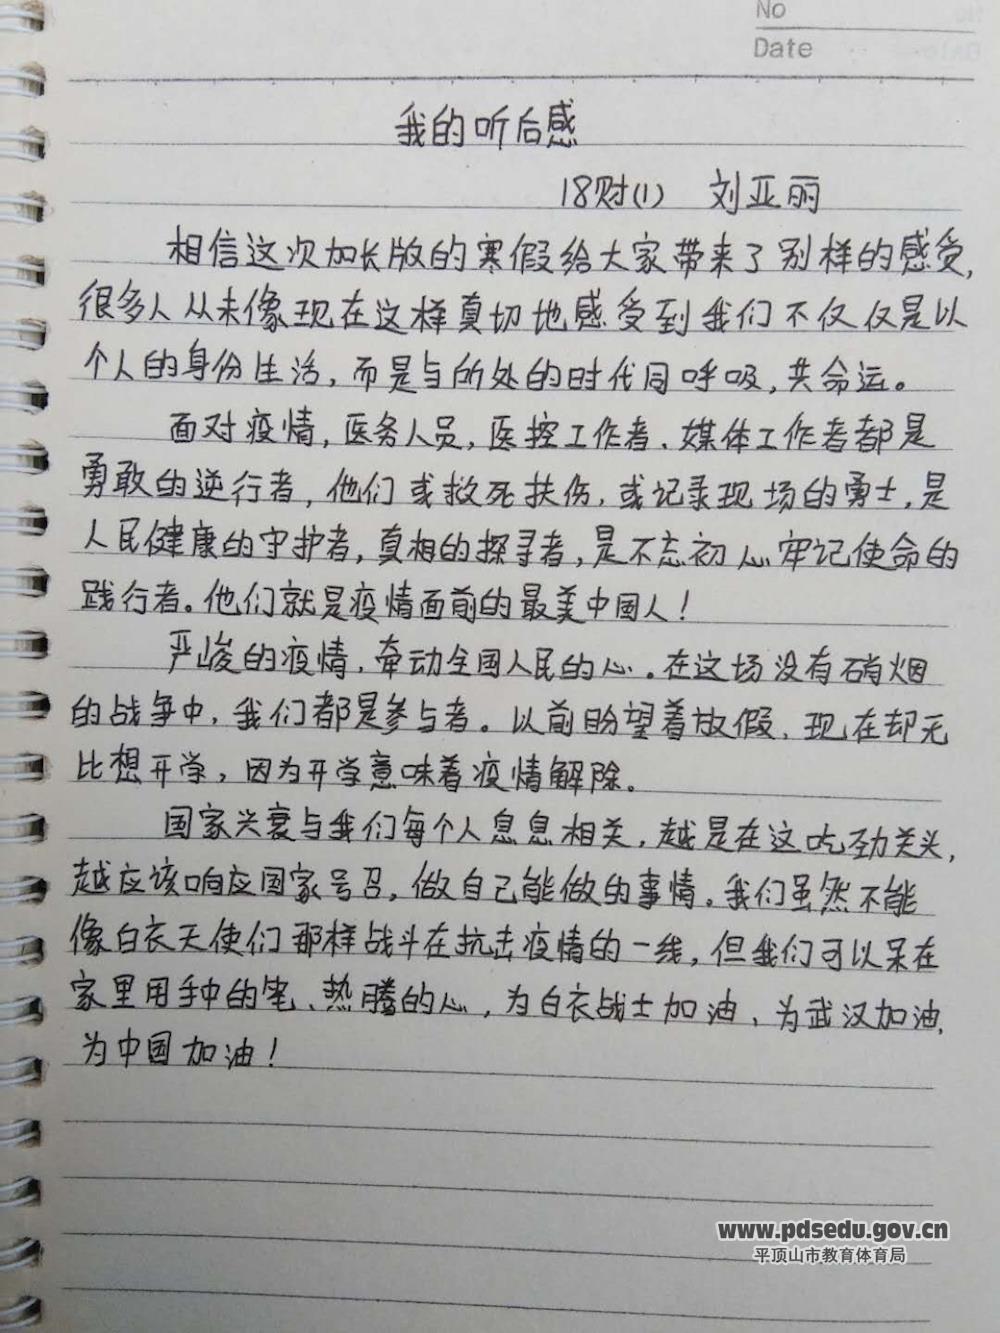 No
Date
我的听后感
18财(1) 刘亚丽
相信这次加长版的寒假给大家带来了别样的感受,
很多人从未像现在这样真切地感受到我们不仅仅是以
个人的身份生活,而是与所处的时代同呼吸,共命运。
面对疫情,医务人员,医控工作者、媒体工作者都是
勇敢的逆行者,他们或救死扶伤、或记录现场的勇士,是
人民健康的守护者,真相的探寻者,是不忘初心牢记使命的
践行者。他们就是疫情面前的最美中国人!
严峻的疫情,牵动全国人民的心。在这场没有硝烟
的战争中,我们都是参与者。以前盼望着放假、现在却无
比想开学,因为开学意味着疫情解除。
国家兴衰与我们每个人息息相关,越是在这吃劲关头,
越应该响应国家号召,做自己能做的事情。我们虽然不能
像白衣天使们那样战斗在抗击疫情的一线,但我们可以呆在
家里用手中的笔、热腾的心,为白衣战士加油、为武汉加油,
为中国加油!
www.pdsedu.gov.cn
平顶山市教育体育局